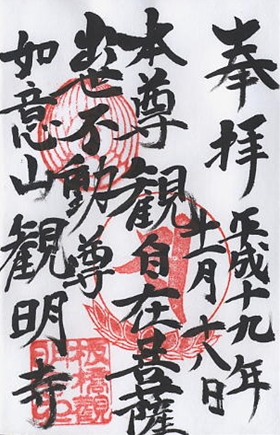 奉拝
平成十九年
十一月十八日
本尊 観自在菩薩
出世不動尊
如意山観明寺
板橋観
明寺